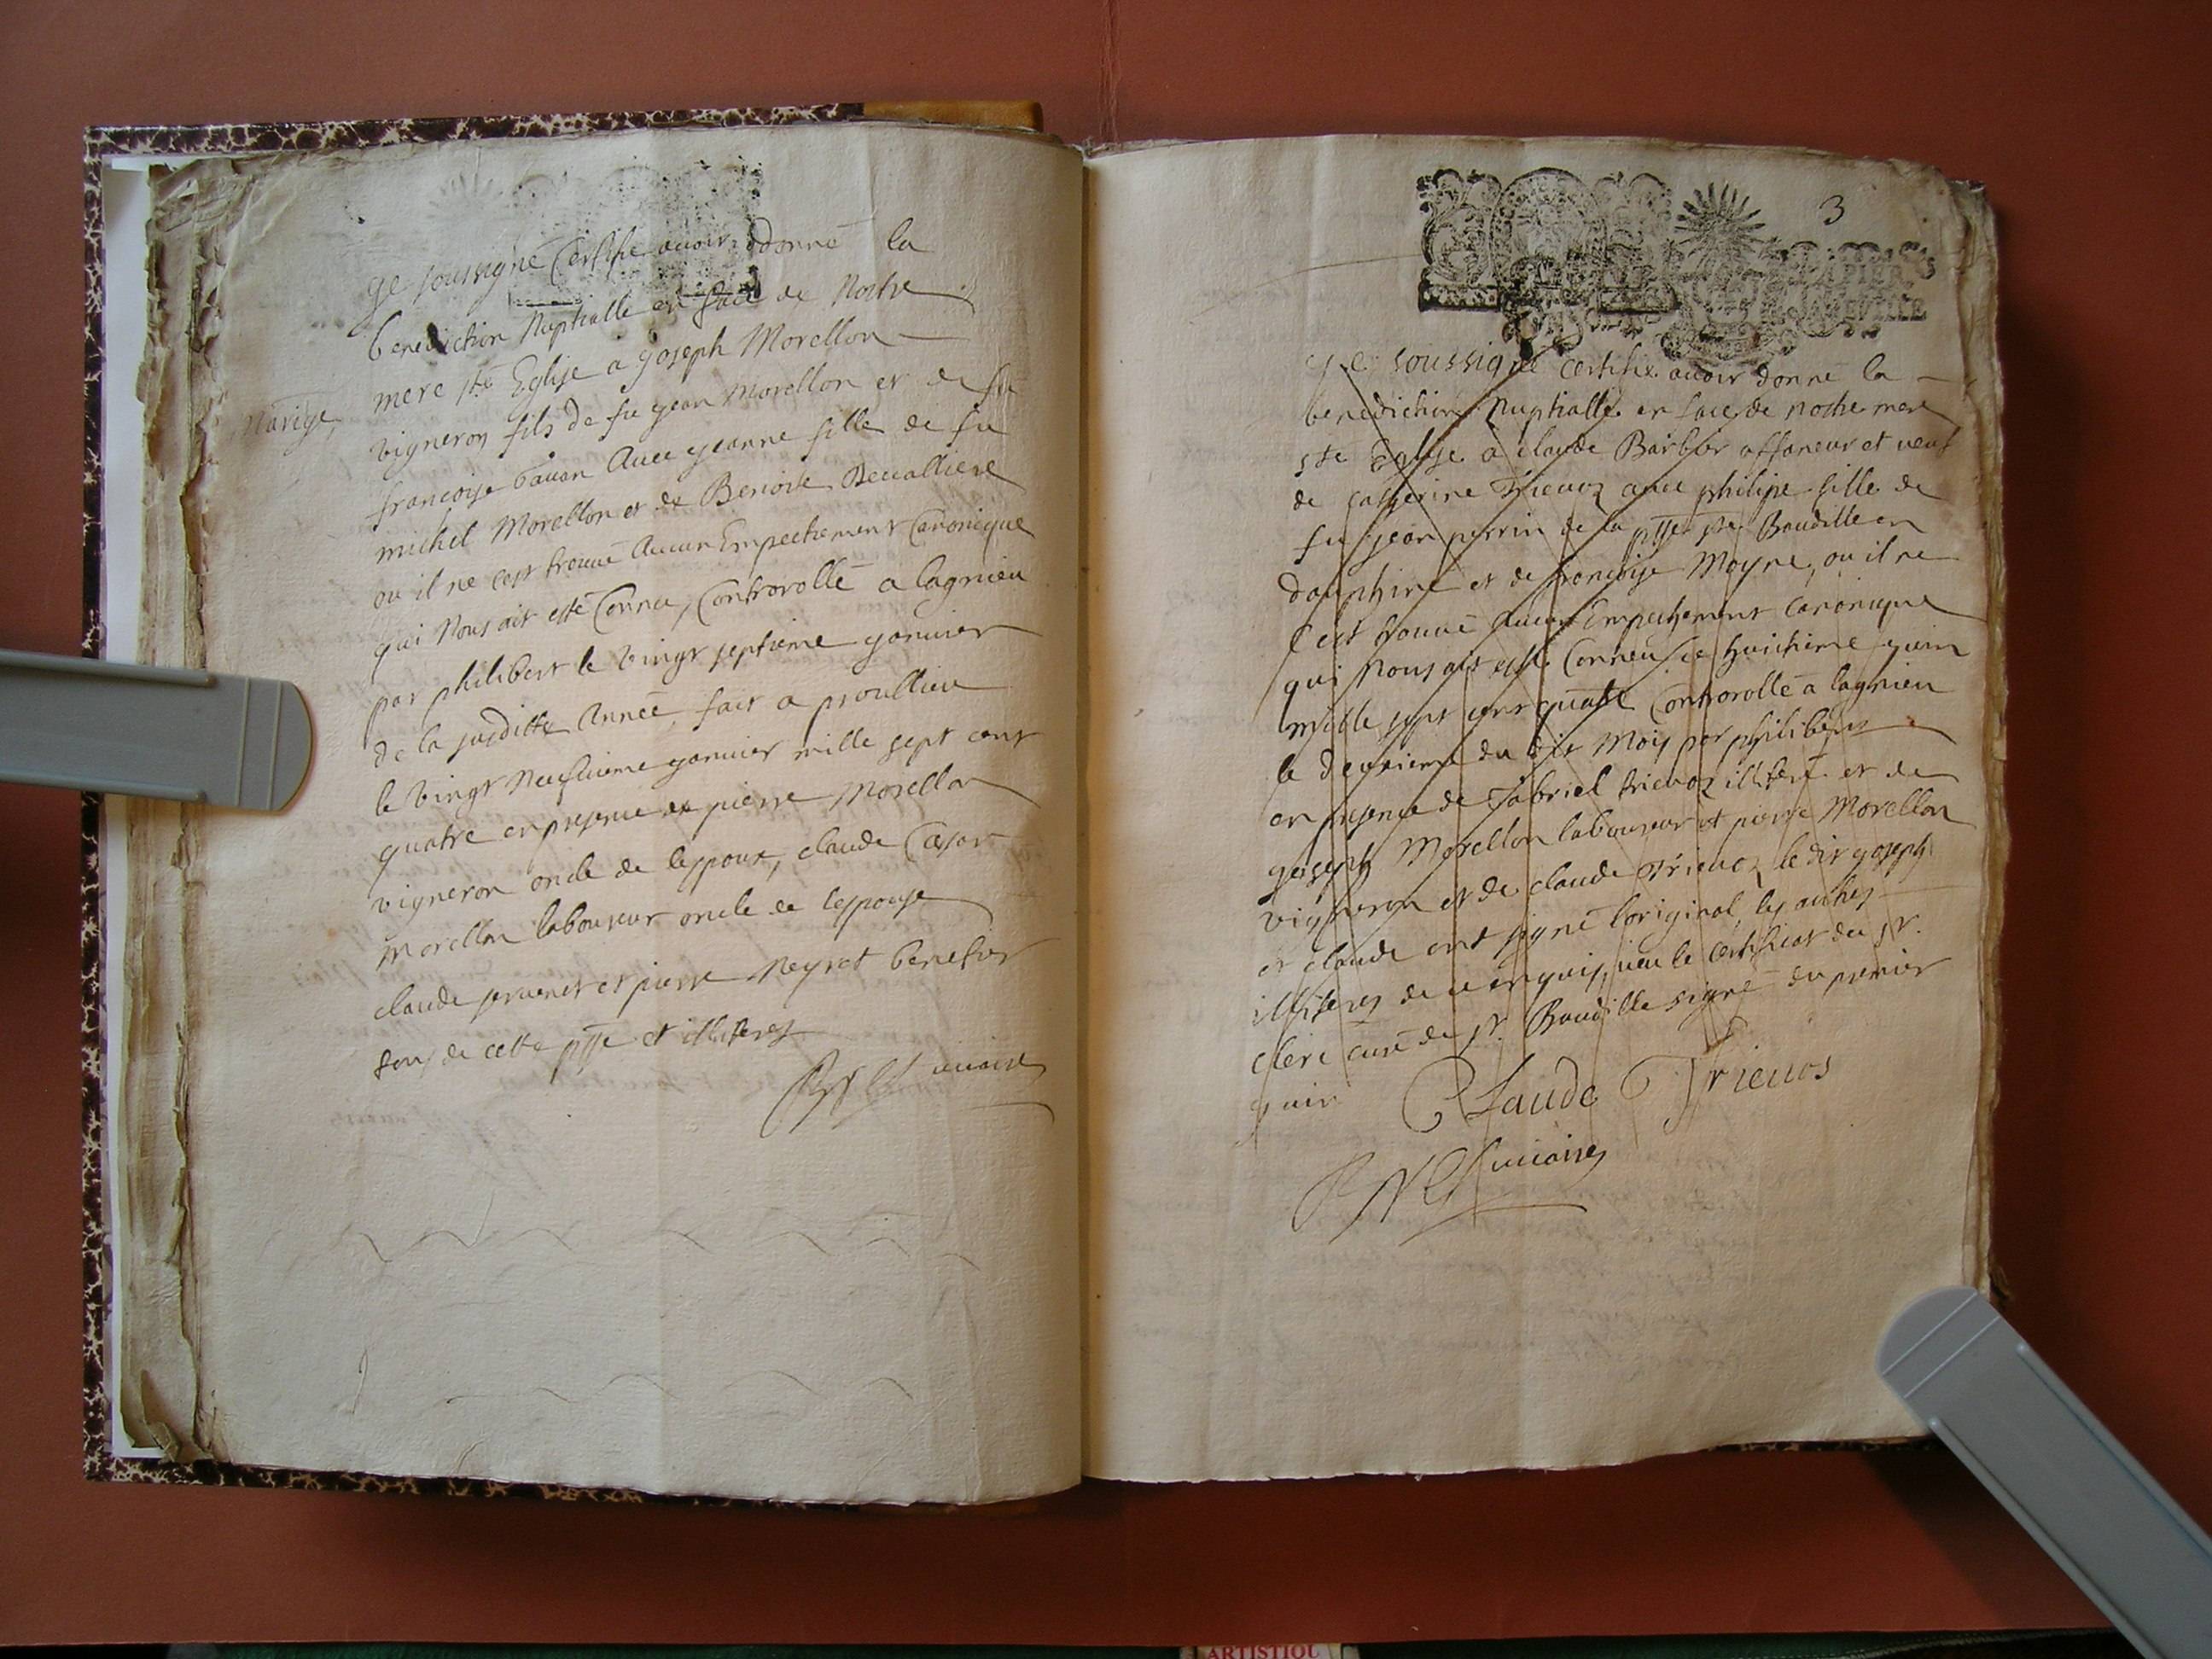 Je soussigné Certifie avoir donné la
benediction Nuptialle en face de Nostre
mere ste Eglise a Joseph Morellon
Mariage
vigneron fils de fu jean Morellon et de fu
francoise bavan Avec jeanne fille de fu
michel Morellon et de Benoite Devalliere
ou il ne cest trouvé Aucun Empechement Canonique
qui Nous ait esté Connu, Controrollé a lagnieu
par philibert le vingt septieme janvier
de la susditte Année, fait a proullieu
le vingt Neufvieme janvier mille sept cent
quatre en presence de pierre Morellon
vigneron oncle de lespoux, claude Cesar
Morellon laboureur oncle de lespouse
claude servenet et pierre Neyret benetier
tous de cette psse et illiteres
vicaire
3
PAPIER
Je soussigné certifie avoir donné la
benediction Nuptialle en face de nostre mere
ste Eglise a claude Barbier affaneur et veuf
de catherine Trievoz avec philipe fille de
fu jean perrin de la psse de st Baudille en
dauphiné et de francoise Moyne, ou il ne
cest trouvé Aucun Empechement canonique
qui Nous ait esté Conneu ce huictieme juin
mille sept cent quatre Controrollé a lagnieu
le deuxieme du dit Mois par philibert
en presence de Gabriel trievoz illiteré et de
joseph Morellon laboureur et pierre Morellon
vigneron et de claude Trievoz le dit joseph
et claude ont signé loriginal, les autres
illiteres de ce enquis, veu le certificat du sr.
clerc curé de st. Baudille signé du premier
juin
Claude Trievos
vicaire
ARTISTIQU